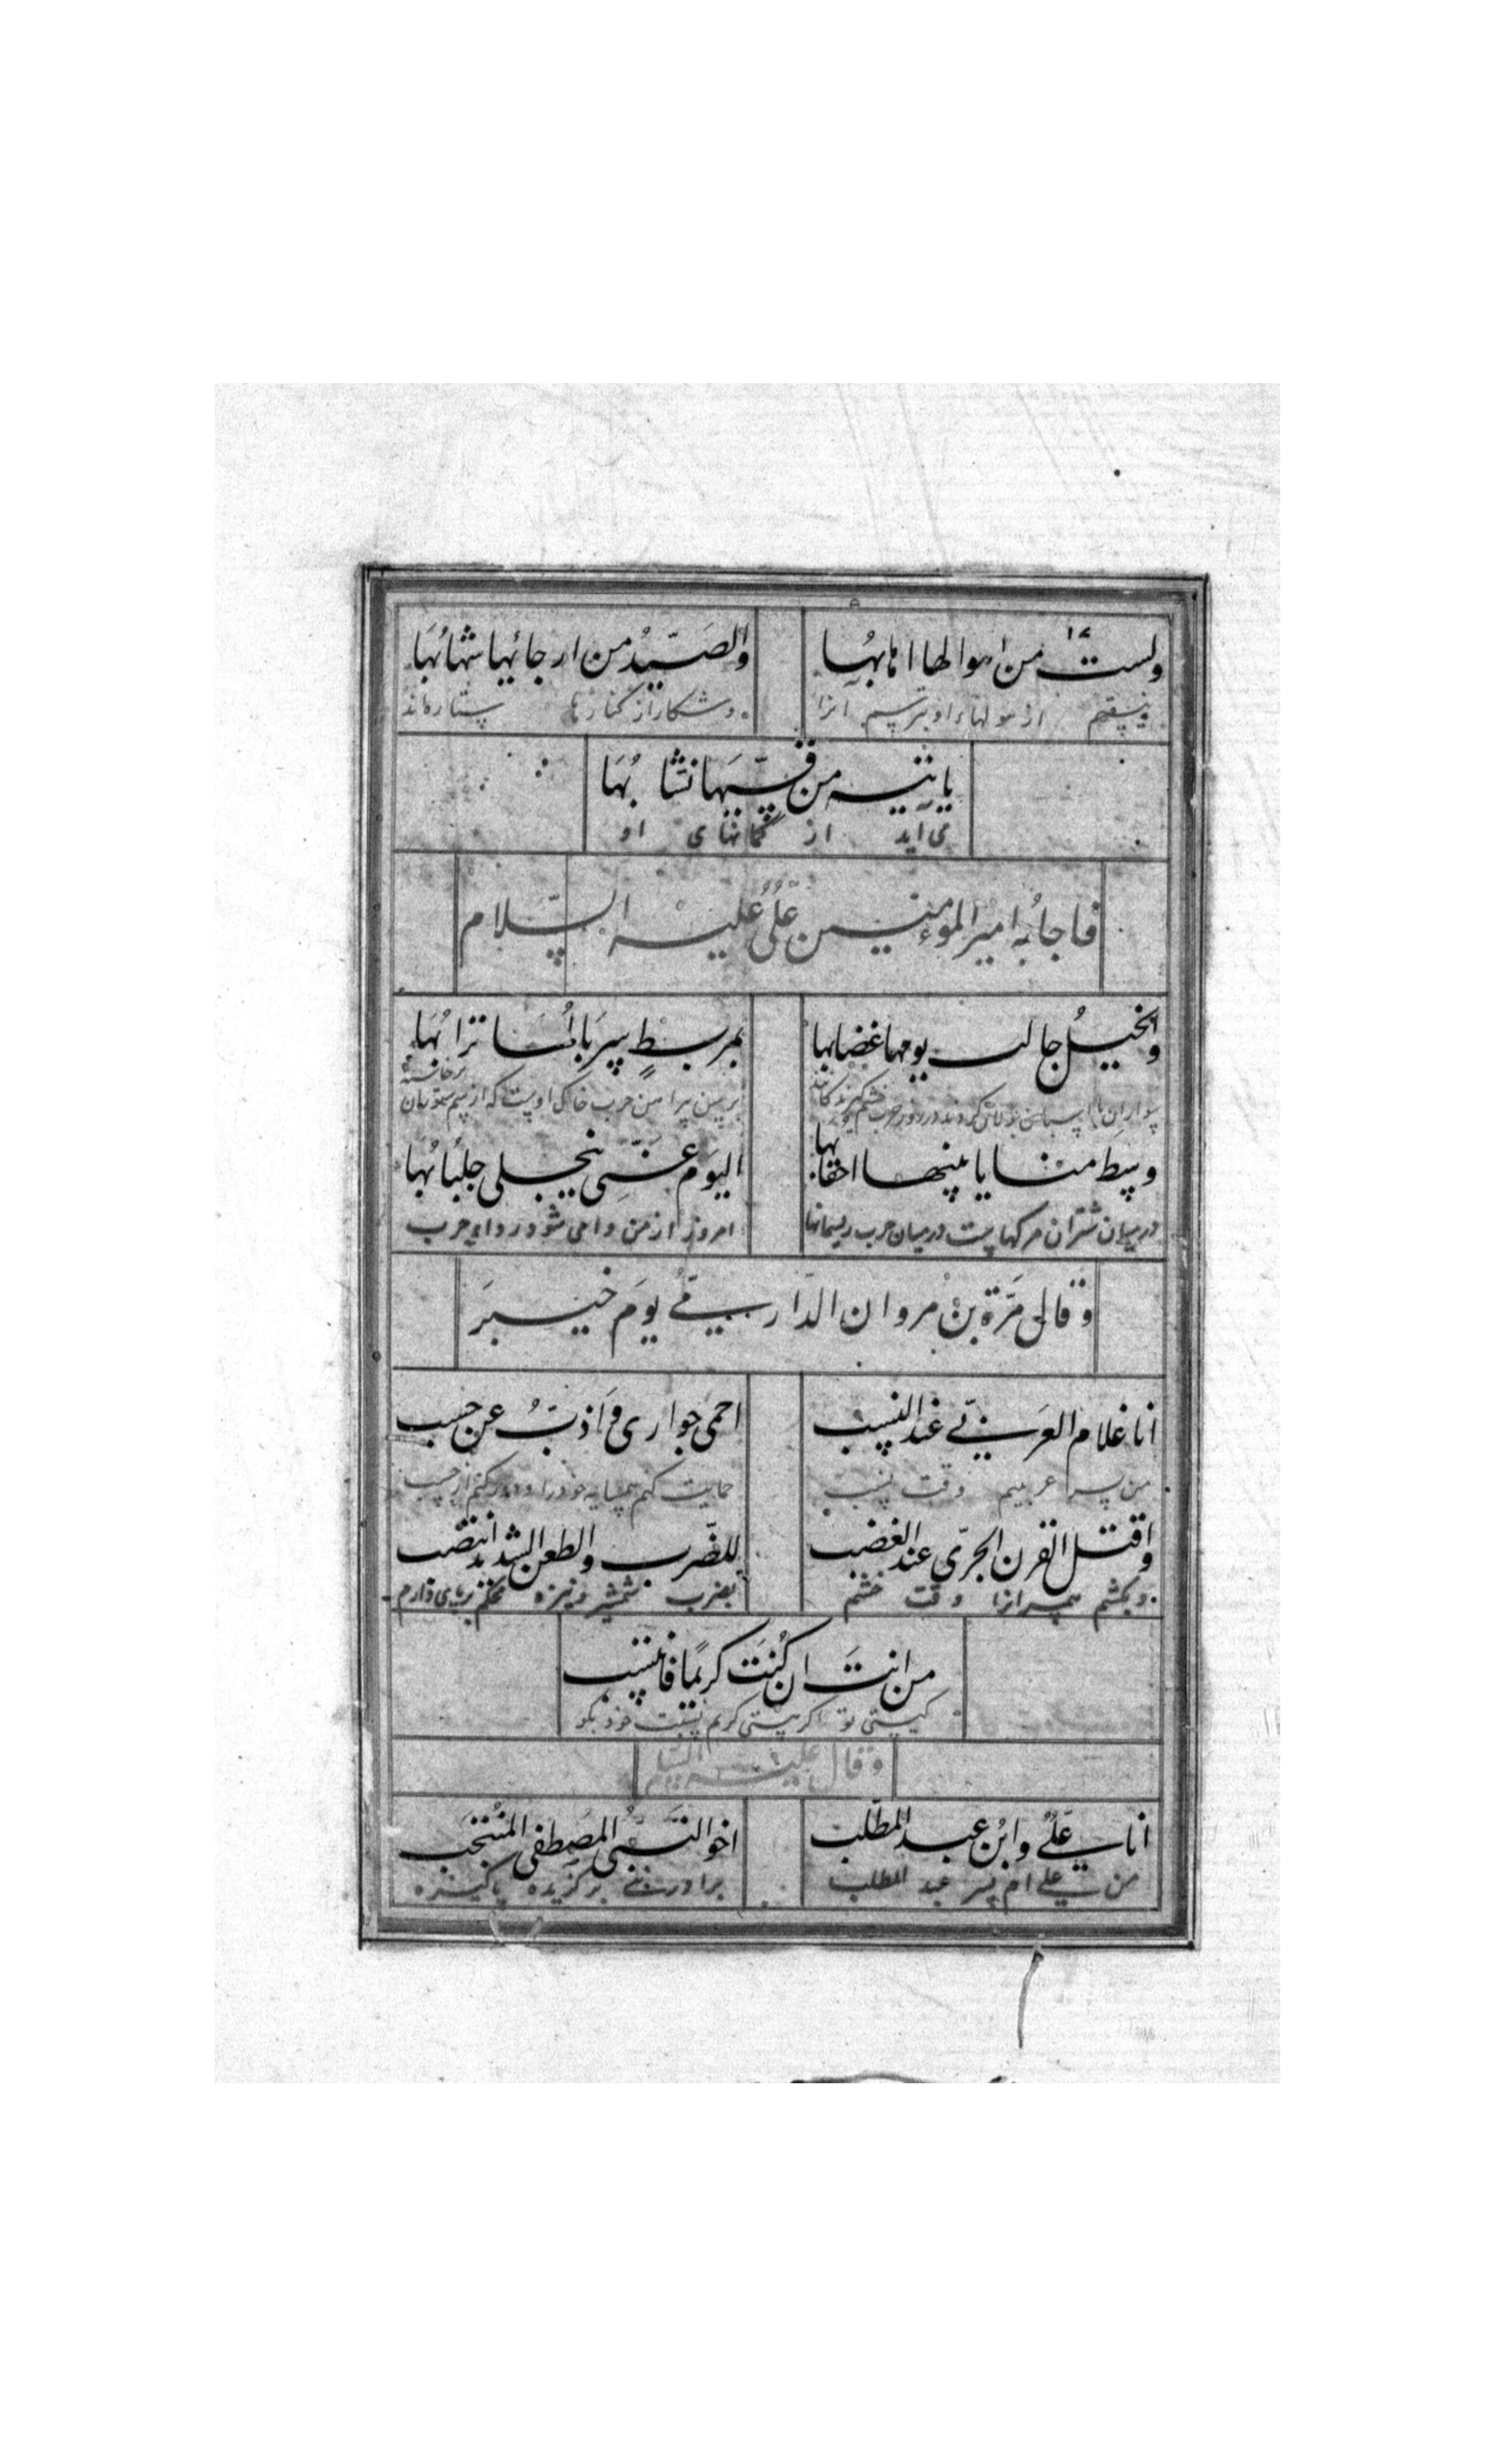 ولستُ من اهوالها اهابُها والصَّيدُ من ارجائها شهابُها
ونیستم از هولهاء او بترسیم آنرا و شکار از کنارها ستاره‌اند
یاتیه من قسّیها نشّابُها
می آید از کمانهای او
فاجابه امیر المؤمنین علی علیه السّلام
والخیلُ جالت یومها غضابها بمربطٍ سربالُها ترابُها
سواران با اسبان جولان کردند در روز حرب خشم گیرندگانند
وسط منایا بینها احقابها الیوم عنّی ینجلی جلبابُها
در میان شتران مرگهاست در میان حرب ریسمانها امروز از من وا می شود ردای حرب
و قال مرّة بن مروان الدّارمی یوم خیبر
انا غلام العربی عند النسب احمی جواری و اذبُّ عن حسب
من پسر عربیم وقت نسب حمایت کنم همسایه خود را و دور کنم از حسب
واقتل القرن الجریّ عند الغضب للضّرب والطعن الشدید انتصب
و بکشم همسرانرا وقت خشم بضرب شمشیر و نیزه محکم برپای دارم
من انت ان کُنتَ کریمًا فانتسب
کیستی تو اگر هستی کریم نسبت خود بگو
وقال علیه السّلام
انا علیٌّ وابن عبد المطّلب اخو النّبی المصطفی المنتجب
من علی ام پسر عبد المطلب برادر نبی برگزیده پاکیزه